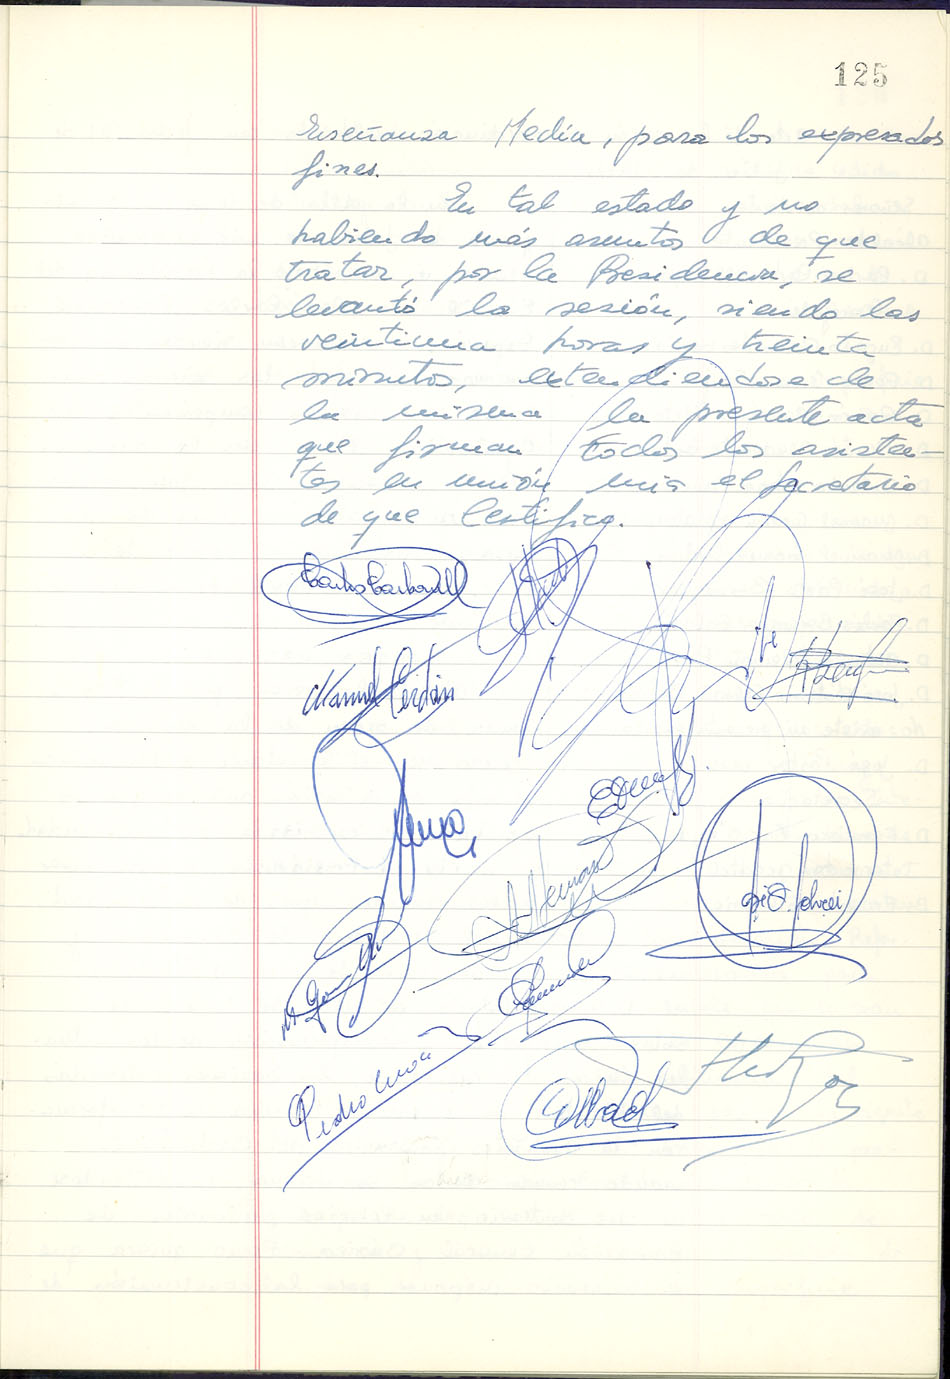 125
Enseñanza Media, para los expresados
fines.
En tal estado y no
habiendo más asuntos de que
tratar, por la Presidencia, se
levantó la sesión, siendo las
veintiuna horas y treinta
minutos, extendiendose de
la misma la presente acta
que firman todos los asisten-
tes en unión mia el Secretario
de que Certifico.
Carlos Carbonell
Manuel Cerdán
Pedro